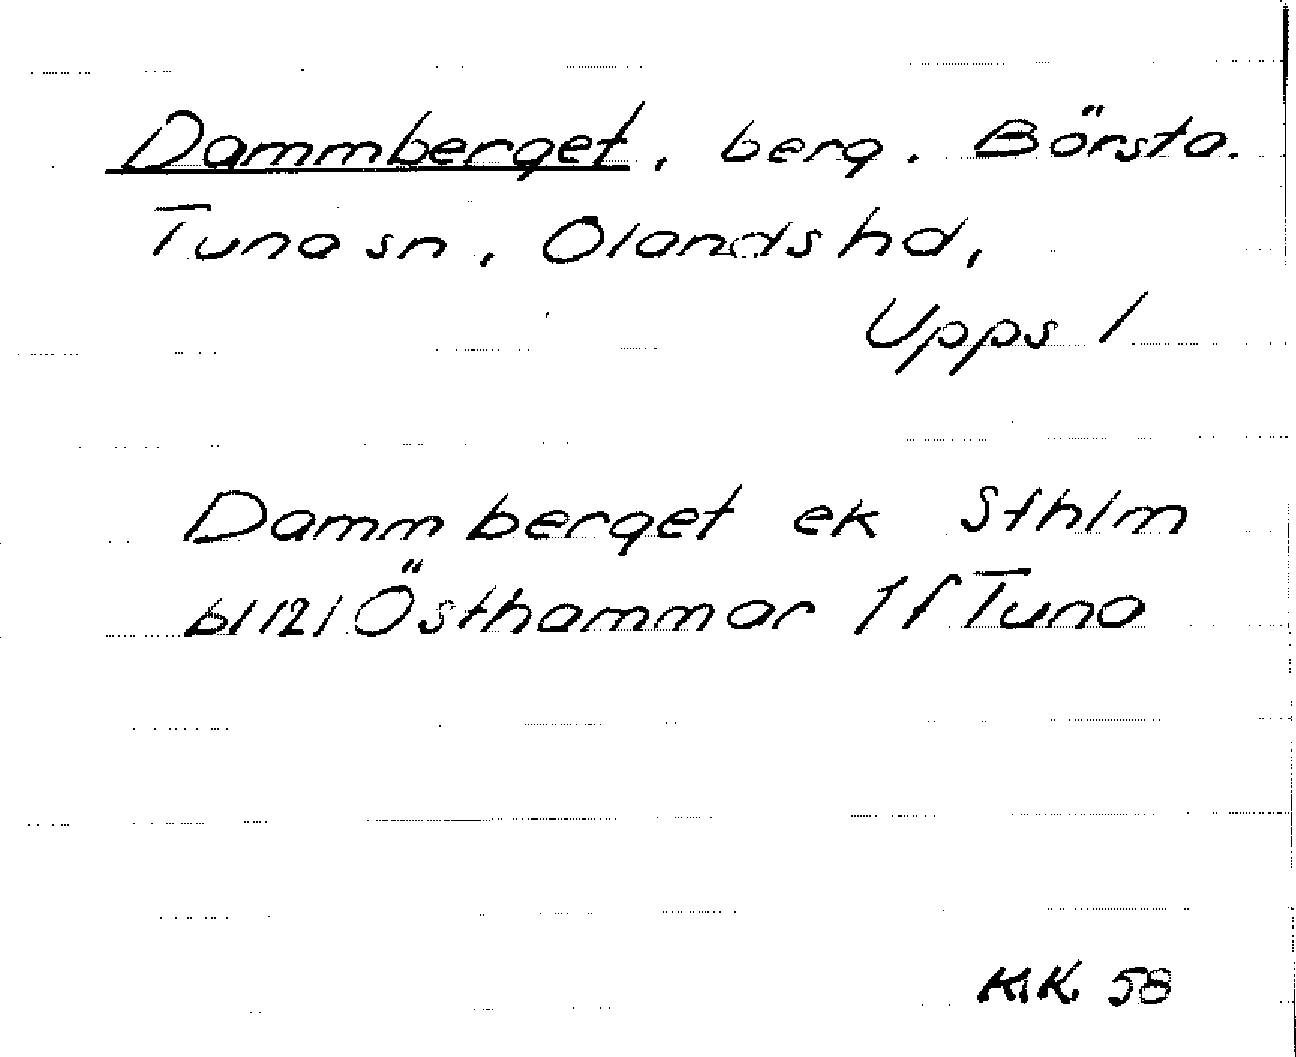 Dammberget, berg. Börsta.
Tuna sn, Olands hd,
Upps l
Dammberget ek Sthlm
bl 121 Östhammar 1 f Tuna
K.K. 58